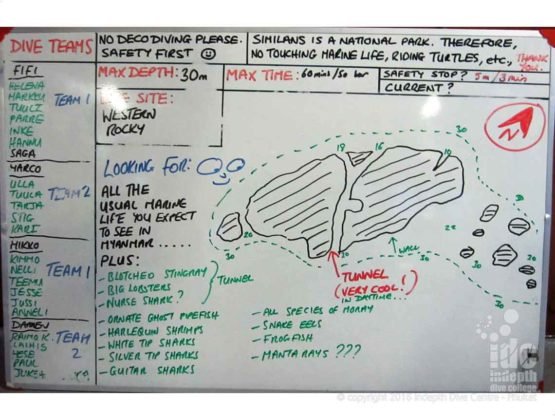 DIVE TEAMS
FIFI
HELENA
MARKKU
TUULI
PARRE
INKE
HANNU
TEAM 1
SAGA
MARCO
ULLA
TUULA
TARJA
STIG
KARI
TEAM 2
MIKKO
KIMMO
NELLI
TEEMU
JESSE
JUSSI
ANNELI
TEAM 1
DAMEN
RAIMO K.
LAIHIS
PAUL
TEAM
2
NO DECO DIVING PLEASE.
SAFETY FIRST
SIMILANS IS A NATIONAL PARK. THEREFORE,
NO TOUCHING MARINE LIFE, RIDING TURTLES, etc., THANK
YOU.
MAX DEPTH: 30m
MAX TIME: 60 mins/50 bar
SAFETY STOP? 5m/3min
CURRENT?
DIVE SITE:
WESTERN
ROCKY
LOOKING FOR:
ALL THE
USUAL MARINE
LIFE YOU EXPECT
TO SEE IN
MYANMAR.....
PLUS:
- BLOTCHED STINGRAY
- BIG LOBSTERS
- NURSE SHARK?
TUNNEL
- ORNATE GHOST PIPEFISH
- HARLEQUIN SHRIMPS
- WHITE TIP SHARKS
- SILVER TIP SHARKS
- GUITAR SHARKS
- ALL SPECIES OF MORAY
- SNAKE EELS
- FROGFISH
- MANTA RAYS ???
N
30
18
16
10
20
30
22
30
30
30
30
WALL
TUNNEL
(VERY COOL!)
IN DAYTIME...
idc
indepth
dive college
© copyright 2016 Indepth Dive Centre - Phuket